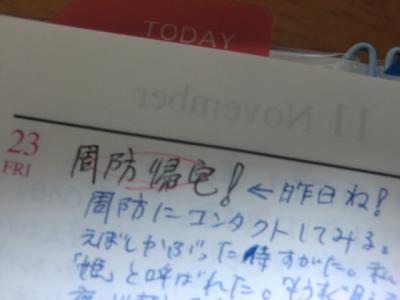 TODAY
11 November
23
FRI
周防帰宅! ←昨日ね!
周防にコンタクトしてみる。
えぼしかぶった侍すがた。私
「姫」と呼ばれた。